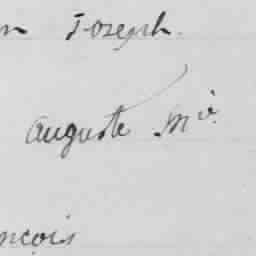 n Joseph.
Auguste Mie.
nçois